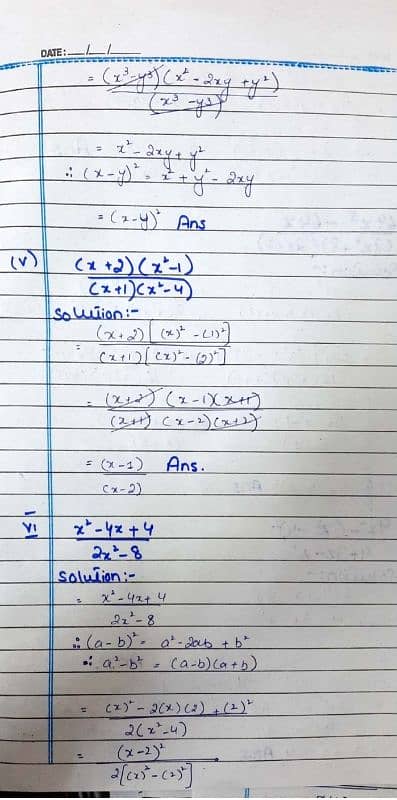 DATE: / /
= (x³-y³)(x² - 2xy + y²)
(x³ - y³)
= x² - 2xy + y²
∴ (x-y)² = x² + y² - 2xy
= (x-y)² Ans
(V) (x+2)(x²-1)
(x+1)(x²-4)
Solution:-
= (x+2)[(x)² - (1)²]
(x+1)[(x)² - (2)²]
= (x+2)(x-1)(x+1)
(x+1)(x-2)(x+2)
= (x-1) Ans.
(x-2)
VI x² - 4x + 4
2x² - 8
Solution:-
= x² - 4x + 4
2x² - 8
∴ (a-b)² = a² - 2ab + b²
∵ a² - b² = (a-b)(a+b)
= (x)² - 2(x)(2) + (2)²
2(x² - 4)
= (x-2)²
2[(x)² - (2)²]